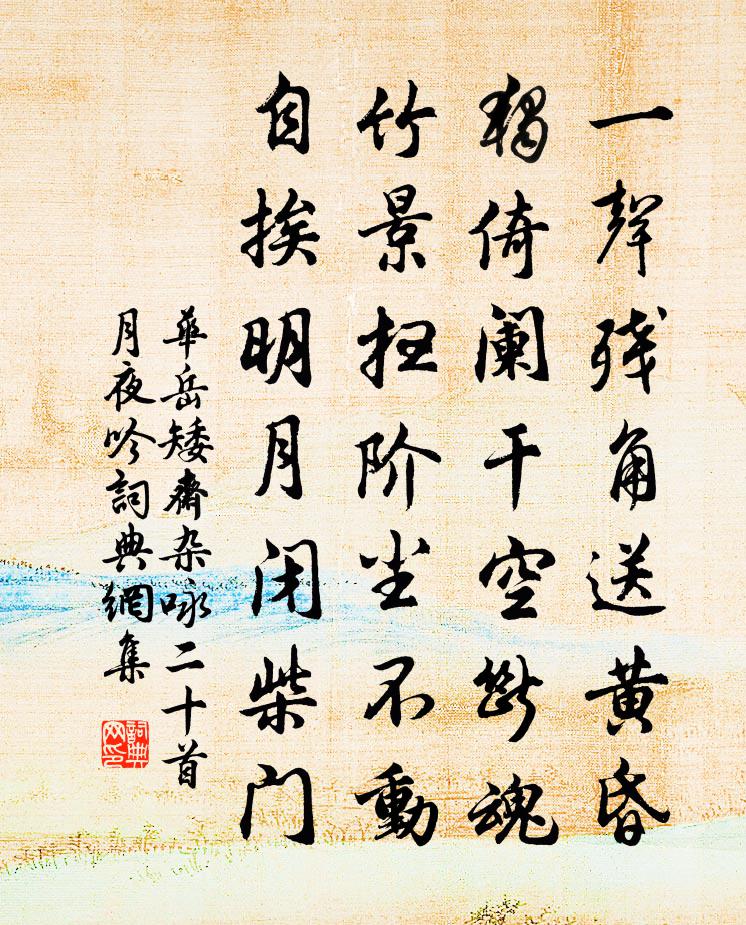 一聲残角送黄昏
獨倚阑干空斷魂
竹景扫阶尘不動
自挨明月闭柴门
華岳矮齋杂咏二十首
月夜吟詞典網集
詞典网印